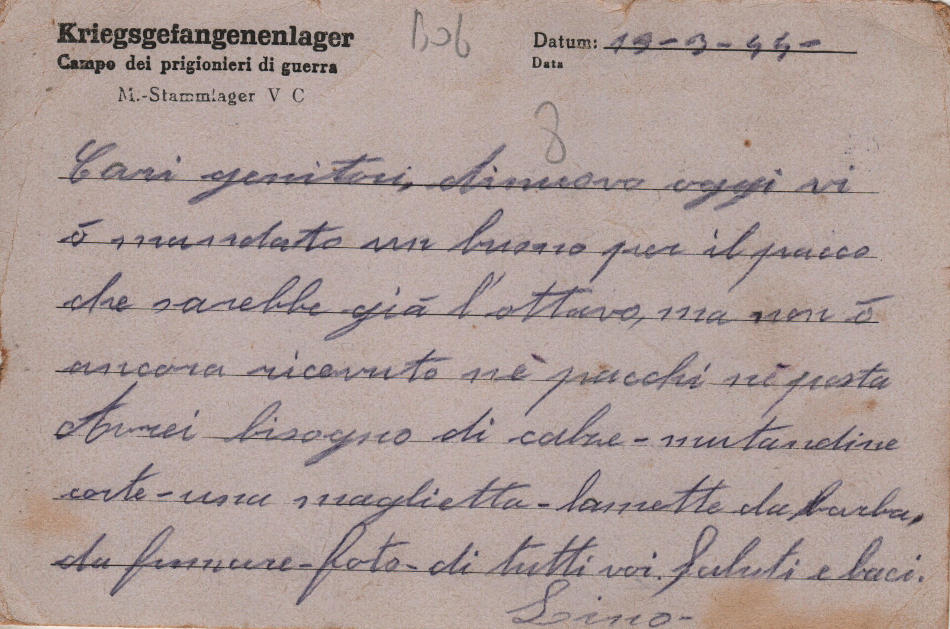 Kriegsgefangenenlager
Campo dei prigionieri di guerra
M.-Stammlager V C
Datum: 19-3-44-
Data
8
Cari genitori, dinuovo oggi vi
ò mandato un buono per il pacco
che sarebbe già l'ottavo, ma non ò
ancora ricevuto nè pacchi nè posta
Avrei bisogno di calze-mutandine
corte-una maglietta-lamette da barba,
da fumare-foto-di tutti voi. Saluti e baci.
Lino-